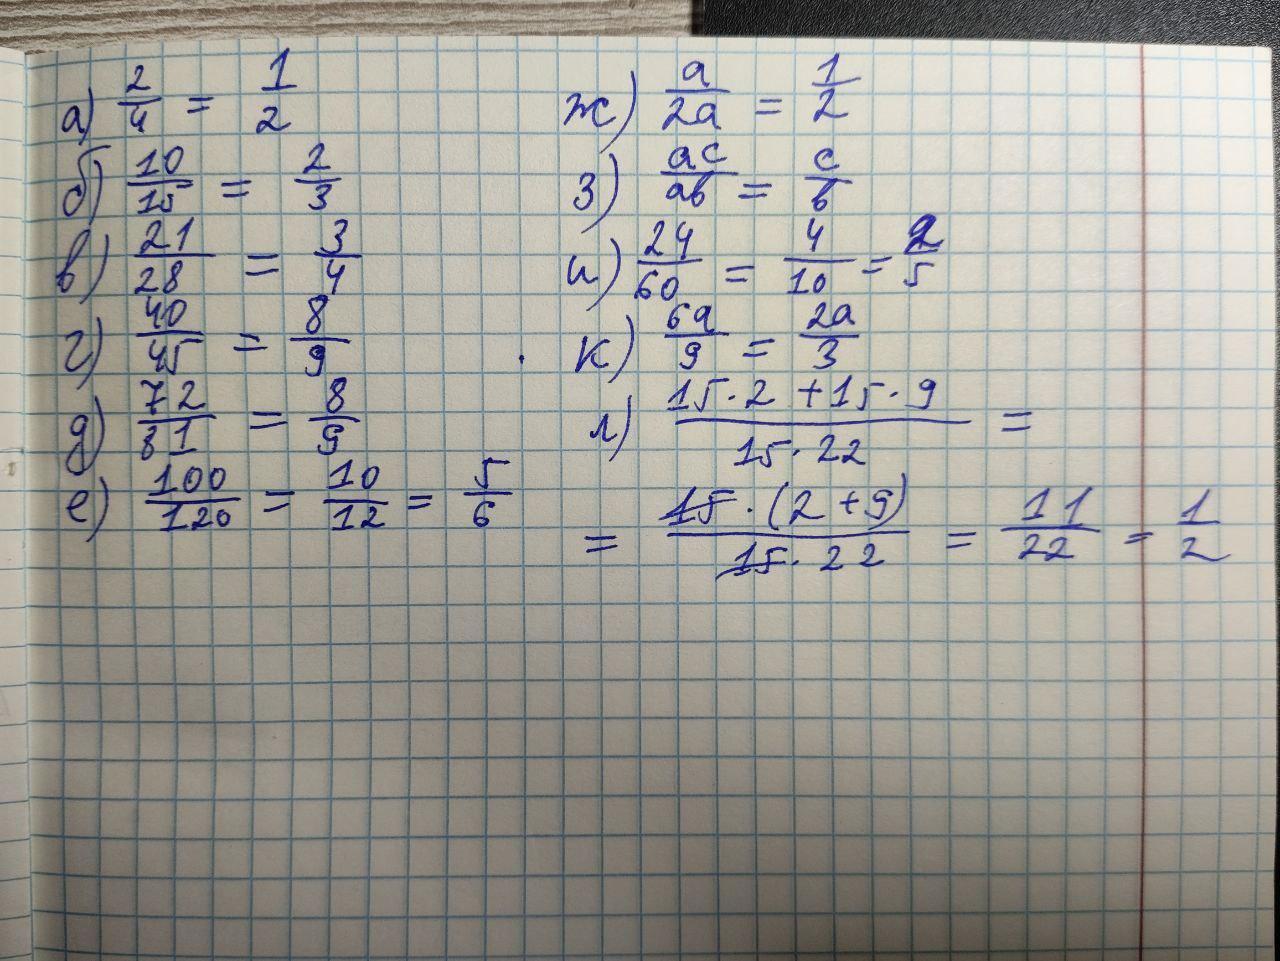 а) 2/4 = 1/2
б) 10/15 = 2/3
в) 21/28 = 3/4
г) 40/45 = 8/9
д) 72/81 = 8/9
е) 100/120 = 10/12 = 5/6
ж) a/2a = 1/2
з) ac/ab = c/b
и) 24/60 = 4/10 = 2/5
к) 6a/9 = 2a/3
л) (15·2+15·9)/(15·22) =
= (15·(2+9))/(15·22) = 11/22 = 1/2